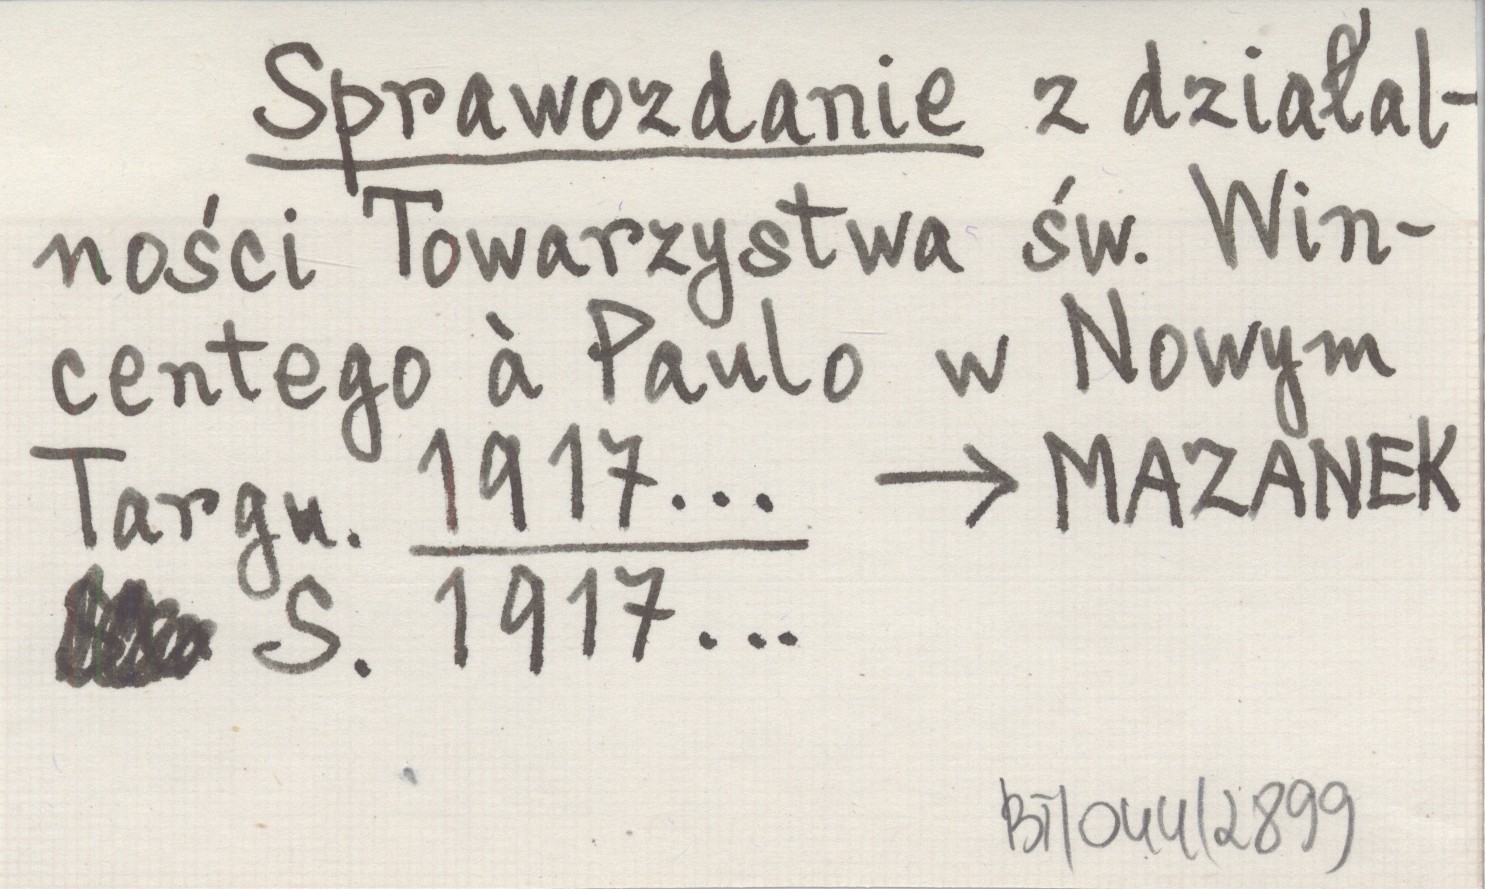 Sprawozdanie z działal-
ności Towarzystwa św. Win-
centego à Paulo w Nowym
Targu. 1917... → MAZANEK
S. 1917...
BT/044/2899